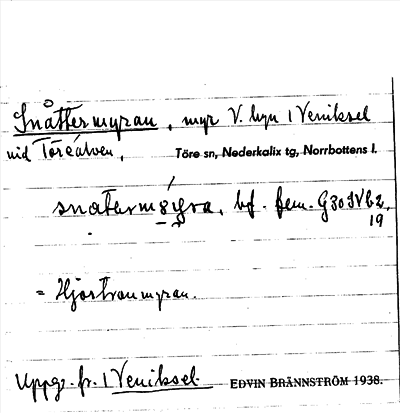 Snåttermyran, myr V. byn 1 Veniksel
vid Töreälven, Töre sn, Nederkalix tg, Norrbottens l.
bf. fem. G30SVb2,
19
= Hjortronmyran.
Uppg. fr. 1 Veniksel EDVIN BRÄNNSTRÖM 1938.